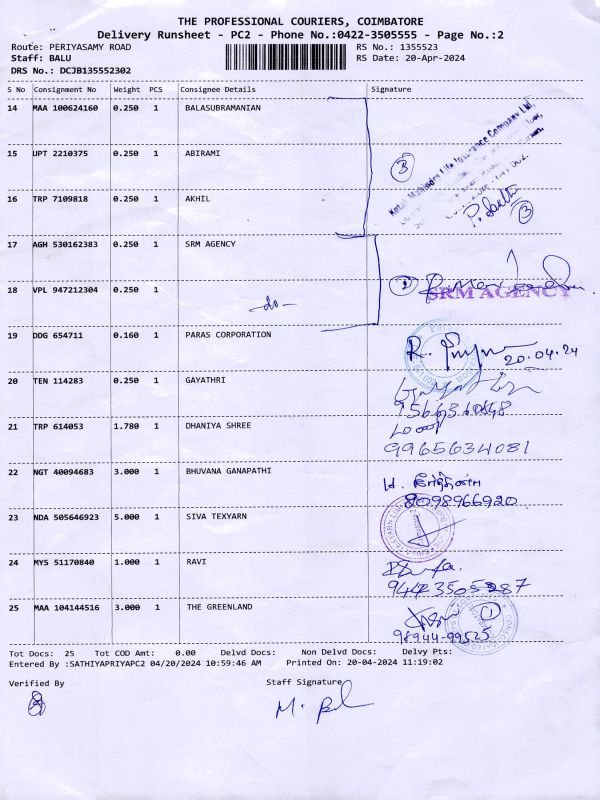 THE PROFESSIONAL COURIERS, COIMBATORE
Delivery Runsheet - PC2 - Phone No.:0422-3505555 - Page No.:2
Route: PERIYASAMY ROAD RS No.: 1355523
Staff: BALU RS Date: 20-Apr-2024
DRS No.: DCJB135552302
S No Consignment No Weight PCS Consignee Details Signature
14 MAA 100624160 0.250 1 BALASUBRAMANIAN
Kotak Mahindra Life Insurance Company Ltd,
15 UPT 2210375 0.250 1 ABIRAMI
3
16 TRP 7109818 0.250 1 AKHIL
3
17 AGH 530162383 0.250 1 SRM AGENCY
18 VPL 947212304 0.250 1 -do- 2
SRM AGENCY
19 DDG 654711 0.160 1 PARAS CORPORATION
20.04.24
20 TEN 114283 0.250 1 GAYATHRI
21 TRP 614053 1.780 1 DHANIYA SHREE
9965634081
22 NGT 40094683 3.000 1 BHUVANA GANAPATHI
8098966920
23 NDA 505646923 5.000 1 SIVA TEXYARN
24 MYS 51170840 1.000 1 RAVI
25 MAA 104144516 3.000 1 THE GREENLAND
1
98944-99525
Tot Docs: 25 Tot COD Amt: 0.00 Delvd Docs: Non Delvd Docs: Delvy Pts:
Entered By :SATHIYAPRIYAPC2 04/20/2024 10:59:46 AM Printed On: 20-04-2024 11:19:02
Verified By Staff Signature